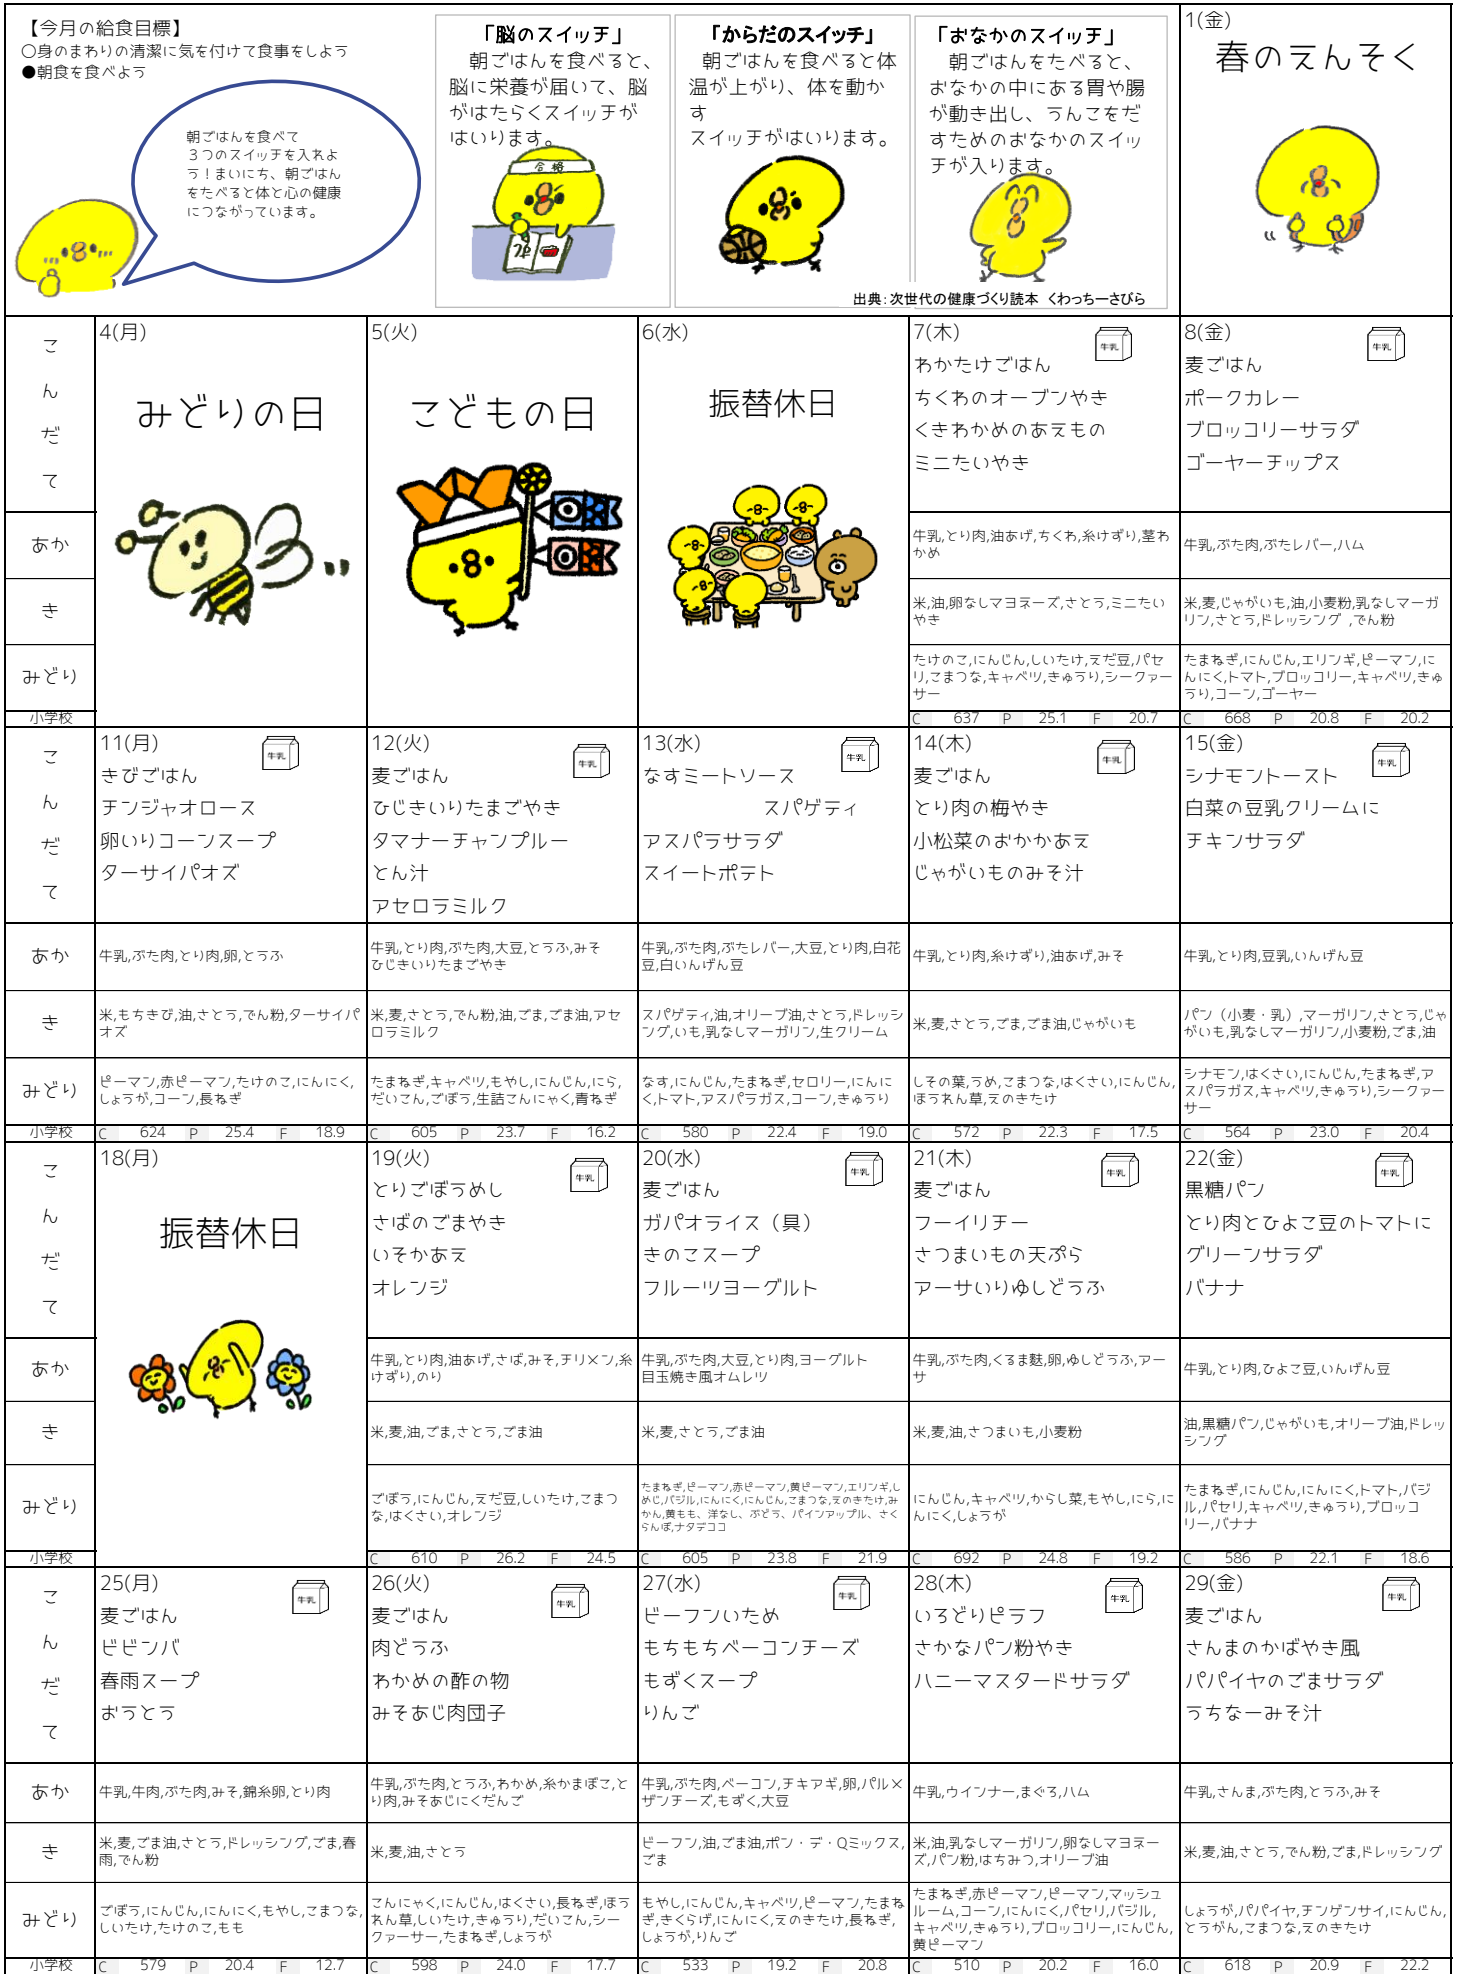 【今月の給食目標】
○身のまわりの清潔に気を付けて食事をしよう
●朝食を食べよう
朝ごはんを食べて
３つのスイッチを入れよ
う！まいにち、朝ごはん
をたべると体と心の健康
につながっています。
「脳のスイッチ」
朝ごはんを食べると、
脳に栄養が届いて、脳
がはたらくスイッチが
はいります。
合格
「からだのスイッチ」
朝ごはんを食べると体
温が上がり、体を動か
す
スイッチがはいります。
「おなかのスイッチ」
朝ごはんをたべると、
おなかの中にある胃や腸
が動き出し、うんこをだ
すためのおなかのスイッ
チが入ります。
出典：次世代の健康づくり読本　くわっちーさびら
1(金)
春のえんそく
こんだて
4(月)
みどりの日
5(火)
こどもの日
6(水)
振替休日
7(木)
牛乳
わかたけごはん
ちくわのオーブンやき
くきわかめのあえもの
ミニたいやき
8(金)
牛乳
麦ごはん
ポークカレー
ブロッコリーサラダ
ゴーヤーチップス
あか
牛乳,とり肉,油あげ,ちくわ,糸けずり,茎わ
かめ
牛乳,ぶた肉,ぶたレバー,ハム
き
米,油,卵なしマヨネーズ,さとう,ミニたい
やき
米,麦,じゃがいも,油,小麦粉,乳なしマーガ
リン,さとう,ドレッシング ,でん粉
みどり
たけのこ,にんじん,しいたけ,えだ豆,パセ
リ,こまつな,キャベツ,きゅうり,シークァー
サー
たまねぎ,にんじん,エリンギ,ピーマン,に
んにく,トマト,ブロッコリー,キャベツ,きゅ
うり,コーン,ゴーヤー
小学校
C 637 P 25.1 F 20.7
C 668 P 20.8 F 20.2
こんだて
11(月)
牛乳
きびごはん
チンジャオロース
卵いりコーンスープ
ターサイパオズ
12(火)
牛乳
麦ごはん
ひじきいりたまごやき
タマナーチャンプルー
とん汁
アセロラミルク
13(水)
牛乳
なすミートソース
スパゲティ
アスパラサラダ
スイートポテト
14(木)
牛乳
麦ごはん
とり肉の梅やき
小松菜のおかかあえ
じゃがいものみそ汁
15(金)
牛乳
シナモントースト
白菜の豆乳クリームに
チキンサラダ
あか
牛乳,ぶた肉,とり肉,卵,とうふ
牛乳,とり肉,ぶた肉,大豆,とうふ,みそ
ひじきいりたまごやき
牛乳,ぶた肉,ぶたレバー,大豆,とり肉,白花
豆,白いんげん豆
牛乳,とり肉,糸けずり,油あげ,みそ
牛乳,とり肉,豆乳,いんげん豆
き
米,もちきび,油,さとう,でん粉,ターサイパ
オズ
米,麦,さとう,でん粉,油,ごま,ごま油,アセ
ロラミルク
スパゲティ,油,オリーブ油,さとう,ドレッシ
ング,いも,乳なしマーガリン,生クリーム
米,麦,さとう,ごま,ごま油,じゃがいも
パン（小麦・乳）,マーガリン,さとう,じゃ
がいも,乳なしマーガリン,小麦粉,ごま,油
みどり
ピーマン,赤ピーマン,たけのこ,にんにく,
しょうが,コーン,長ねぎ
たまねぎ,キャベツ,もやし,にんじん,にら,
だいこん,ごぼう,生詰こんにゃく,青ねぎ
なす,にんじん,たまねぎ,セロリー,にんに
く,トマト,アスパラガス,コーン,きゅうり
しその葉,うめ,こまつな,はくさい,にんじん,
ほうれん草,えのきたけ
シナモン,はくさい,にんじん,たまねぎ,ア
スパラガス,キャベツ,きゅうり,シークァー
サー
小学校
C 624 P 25.4 F 18.9
C 605 P 23.7 F 16.2
C 580 P 22.4 F 19.0
C 572 P 22.3 F 17.5
C 564 P 23.0 F 20.4
こんだて
18(月)
振替休日
19(火)
牛乳
とりごぼうめし
さばのごまやき
いそかあえ
オレンジ
20(水)
牛乳
麦ごはん
ガパオライス（具）
きのこスープ
フルーツヨーグルト
21(木)
牛乳
麦ごはん
フーイリチー
さつまいもの天ぷら
アーサいりゆしどうふ
22(金)
牛乳
黒糖パン
とり肉とひよこ豆のトマトに
グリーンサラダ
バナナ
あか
牛乳,とり肉,油あげ,さば,みそ,チリメン,糸
けずり,のり
牛乳,ぶた肉,大豆,とり肉,ヨーグルト
目玉焼き風オムレツ
牛乳,ぶた肉,くるま麩,卵,ゆしどうふ,アー
サ
牛乳,とり肉,ひよこ豆,いんげん豆
き
米,麦,油,ごま,さとう,ごま油
米,麦,さとう,ごま油
米,麦,油,さつまいも,小麦粉
油,黒糖パン,じゃがいも,オリーブ油,ドレッ
シング
みどり
ごぼう,にんじん,えだ豆,しいたけ,こまつ
な,はくさい,オレンジ
たまねぎ,ピーマン,赤ピーマン,黄ピーマン,エリンギ,し
めじ,バジル,にんにく,にんじん,こまつな,えのきたけ,み
かん,黄もも、洋なし、ぶどう、パインアップル、さく
らんぼ,ナタデココ
にんじん,キャベツ,からし菜,もやし,にら,に
んにく,しょうが
たまねぎ,にんじん,にんにく,トマト,バジ
ル,パセリ,キャベツ,きゅうり,ブロッコ
リー,バナナ
小学校
C 610 P 26.2 F 24.5
C 605 P 23.8 F 21.9
C 692 P 24.8 F 19.2
C 586 P 22.1 F 18.6
こんだて
25(月)
牛乳
麦ごはん
ビビンバ
春雨スープ
おうとう
26(火)
牛乳
麦ごはん
肉どうふ
わかめの酢の物
みそあじ肉団子
27(水)
牛乳
ビーフンいため
もちもちベーコンチーズ
もずくスープ
りんご
28(木)
牛乳
いろどりピラフ
さかなパン粉やき
ハニーマスタードサラダ
29(金)
牛乳
麦ごはん
さんまのかばやき風
パパイヤのごまサラダ
うちなーみそ汁
あか
牛乳,牛肉,ぶた肉,みそ,錦糸卵,とり肉
牛乳,ぶた肉,とうふ,わかめ,糸かまぼこ,と
り肉,みそあじにくだんご
牛乳,ぶた肉,ベーコン,チキアギ,卵,パルメ
ザンチーズ,もずく,大豆
牛乳,ウインナー,まぐろ,ハム
牛乳,さんま,ぶた肉,とうふ,みそ
き
米,麦,ごま油,さとう,ドレッシング,ごま,春
雨,でん粉
米,麦,油,さとう
ビーフン,油,ごま油,ポン・デ・Qミックス,
ごま
米,油,乳なしマーガリン,卵なしマヨネー
ズ,パン粉,はちみつ,オリーブ油
米,麦,油,さとう,でん粉,ごま,ドレッシング
みどり
ごぼう,にんじん,にんにく,もやし,こまつな,
しいたけ,たけのこ,もも
こんにゃく,にんじん,はくさい,長ねぎ,ほう
れん草,しいたけ,きゅうり,だいこん,シー
クァーサー,たまねぎ,しょうが
もやし,にんじん,キャベツ,ピーマン,たまね
ぎ,きくらげ,にんにく,えのきたけ,長ねぎ,
しょうが,りんご
たまねぎ,赤ピーマン,ピーマン,マッシュ
ルーム,コーン,にんにく,パセリ,バジル,
キャベツ,きゅうり,ブロッコリー,にんじん,
黄ピーマン
しょうが,パパイヤ,チンゲンサイ,にんじん,
とうがん,こまつな,えのきたけ
小学校
C 579 P 20.4 F 12.7
C 598 P 24.0 F 17.7
C 533 P 19.2 F 20.8
C 510 P 20.2 F 16.0
C 618 P 20.9 F 22.2